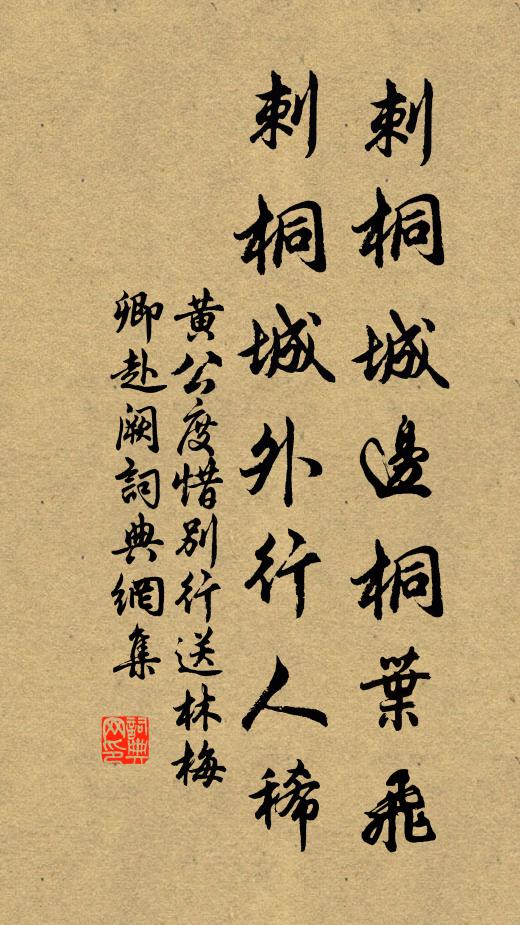 刺桐城邊桐葉飛
刺桐城外行人稀
黃公度惜別行送林梅
卿赴闕詞典網集
詞典網印